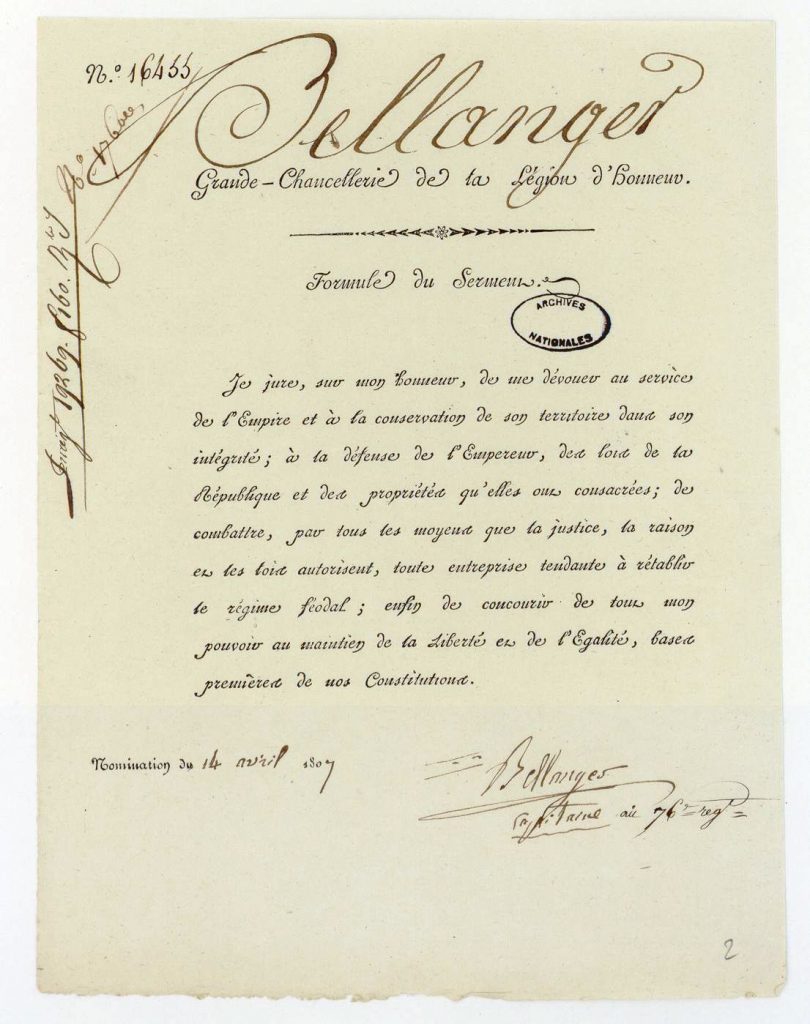 N.º 16455
Bellanger
Grande-Chancellerie de la Légion d'honneur.
Formule du Serment.
ARCHIVES
NATIONALES
Je jure, sur mon honneur, de me dévouer au service
de l'Empire et à la conservation de son territoire dans son
intégrité; à la défense de l'Empereur, des lois de la
République et des propriétés qu'elles ont consacrées; de
combattre, par tous les moyens que la justice, la raison
et les lois autorisent, toute entreprise tendante à rétablir
le régime féodal; enfin de concourir de tout mon
pouvoir au maintien de la Liberté et de l'Egalité, bases
premières de nos Constitutions.
Nomination du 14 avril 1807
Bellanger
capitaine au 76e regt
2